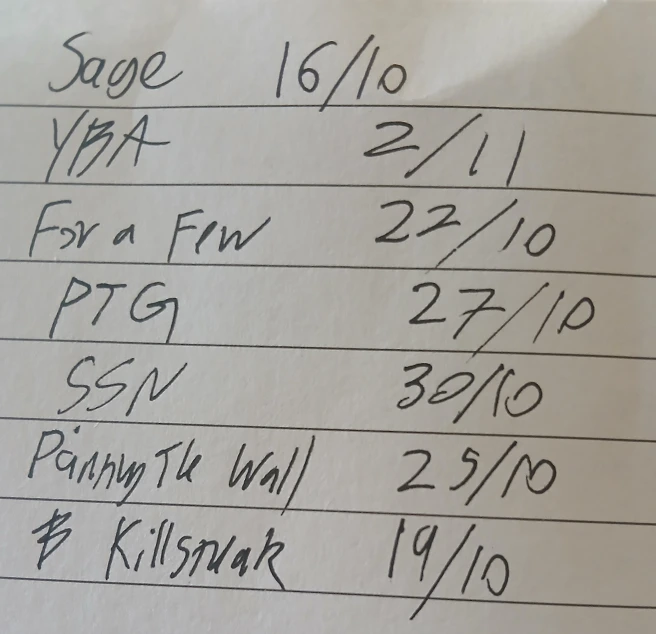 Sage 16/10
YBA 2/11
For a Few 22/10
PTG 27/10
SSN 30/10
Wall 25/10
19/10